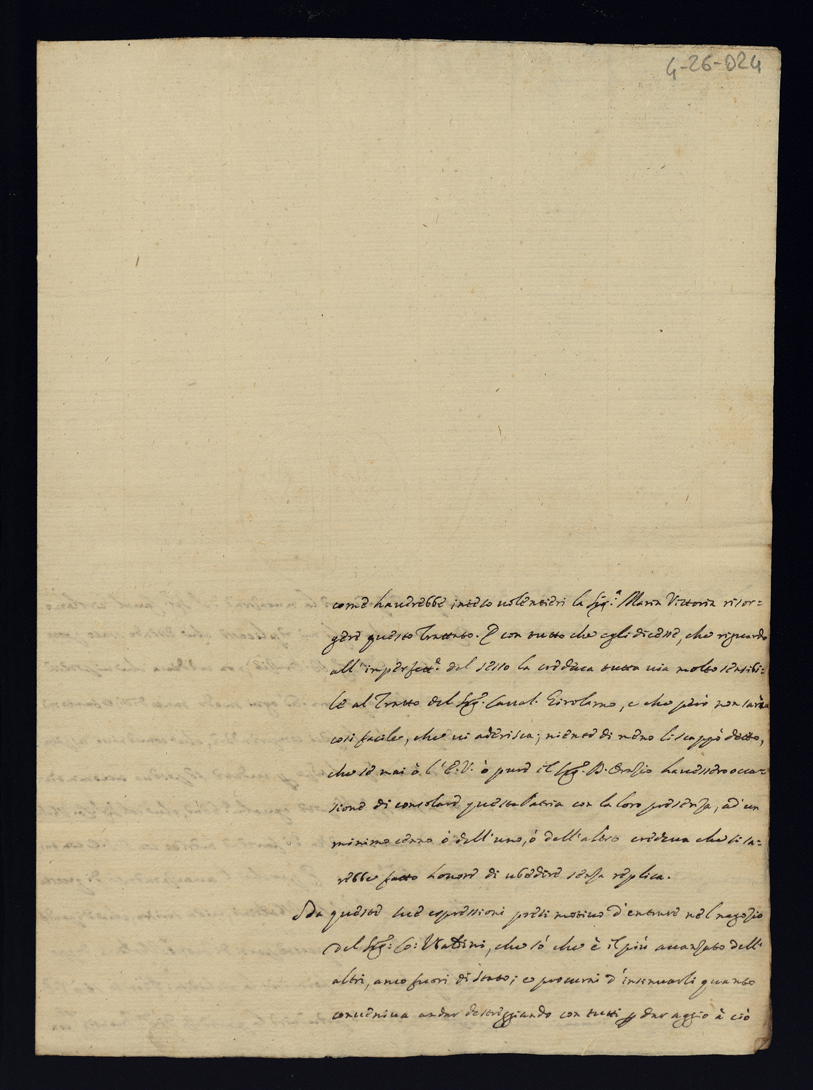 4-26-024
come haverebbe inteso volentieri la Sig.ª Maria Vittoria risor=
gere questo Trattato. E con tutto che egli dicesse, che riguardo
all'imperfett.e del sesso la credeva tutta via molto sensibi=
le al Tratto del Sig.r Caval. Girolamo, e che però non sarà
così facile, che vi aderisca; niente di meno li scappò detto,
che se mai ò l'E.V. ò pure il Sig.r D. Orazio havessero occa=
sione di consolare questa Patria con la loro presenza, ad un
minimo cenno ò dell'uno, ò dell'altro credeva che si sa=
rebbe fatto honore di ubedire senza replica.
Da queste sue espressioni presi motivo d'entrare nel negozio
del Sig.r Co: che sò che è il più avanzato dell'
altri, anco fuori di Stato; e procurai d'insinuarli quanto
conveniva andar destreggiando con tutti p dar aggio à ciò